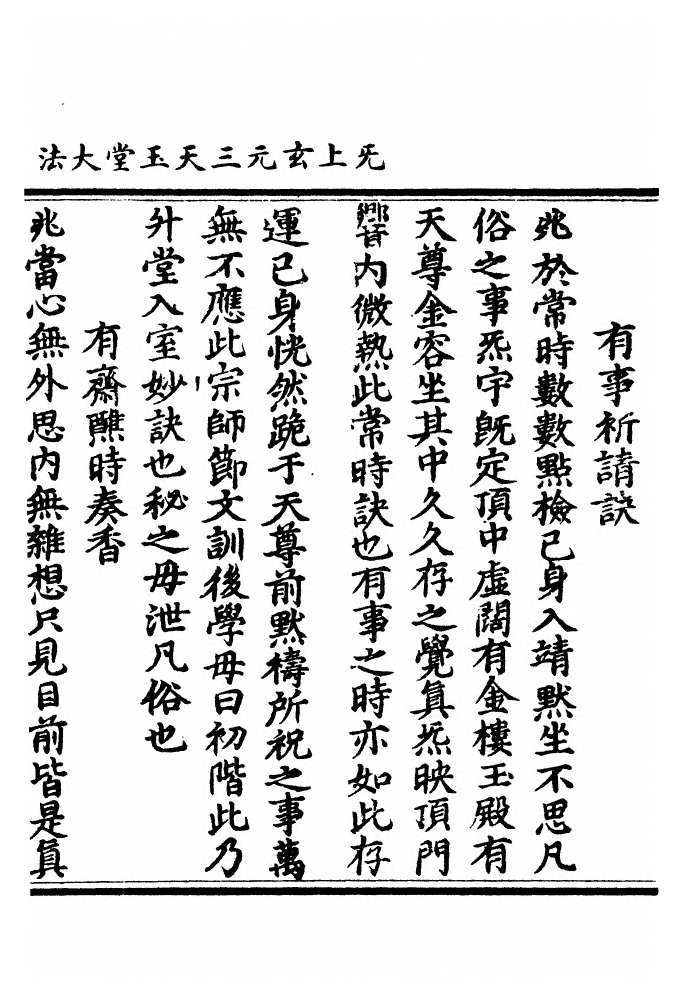 法大堂玉天三元玄上旡
有事祈請訣
兆於常時數數點檢已身入靖黙坐不思凡
俗之事炁宇旣定頂中虛闊有金樓玉殿有
天尊金容坐其中久久存之覺眞炁映頂門
響內微熱此常時訣也有事之時亦如此存
運已身恍然跪于天尊前黙禱所祝之事萬
無不應此宗師節文訓後學毋曰初階此乃
升堂入室妙訣也秘之毋泄凡俗也
有齋醮時奏香
兆當心無外思內無雜想只見目前皆是眞